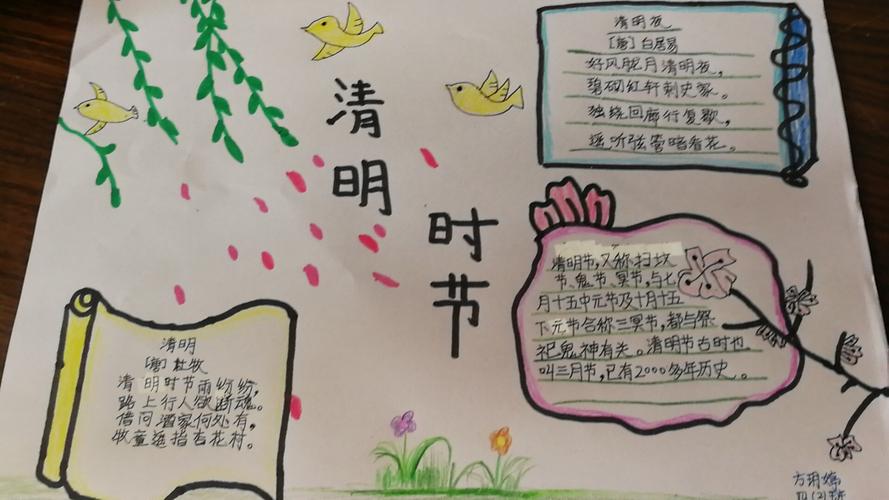 清明
时节
清明夜
[唐]白居易
好风胧月清明夜,
碧砌红轩刺史家。
独绕回廊行复歇,
遥听弦管暗看花。
清明节,又称扫坟
节、鬼节、冥节,与七
月十五中元节及十月十五
下元节合称三冥节,都与祭
祀鬼神有关。清明节古时也
叫三月节,已有2000多年历史。
清明
[唐]杜牧
清明时节雨纷纷,
路上行人欲断魂。
借问酒家何处有,
牧童遥指杏花村。
方玥
四(2)班